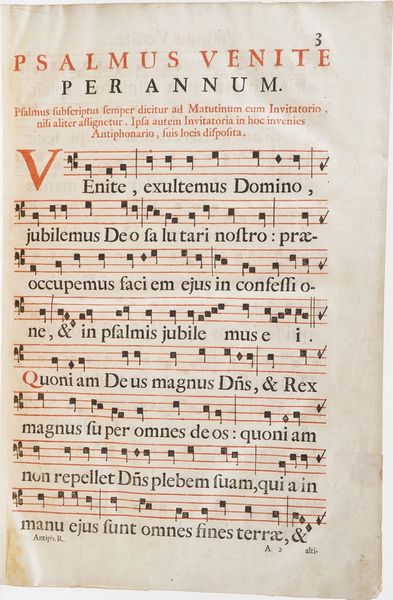 3
PSALMUS VENITE
PER ANNUM.
Psalmus subscriptus semper dicitur ad Matutinum cum Invitatorio,
nisi aliter assignetur. Ipsa autem Invitatoria in hoc invenies
Antiphonario, suis locis disposita.
VEnite, exultemus Domino,
jubilemus Deo sa lu tari nostro: præ-
occupemus faci em ejus in confessi o-
ne, & in psalmis jubile mus e i.
Quoni am De us magnus Dñs, & Rex
magnus su per omnes de os: quoni am
non repellet Dñs plebem suam, qui a in
manu ejus sunt omnes fines terræ, &
Antiph. R.
A 2
alti-